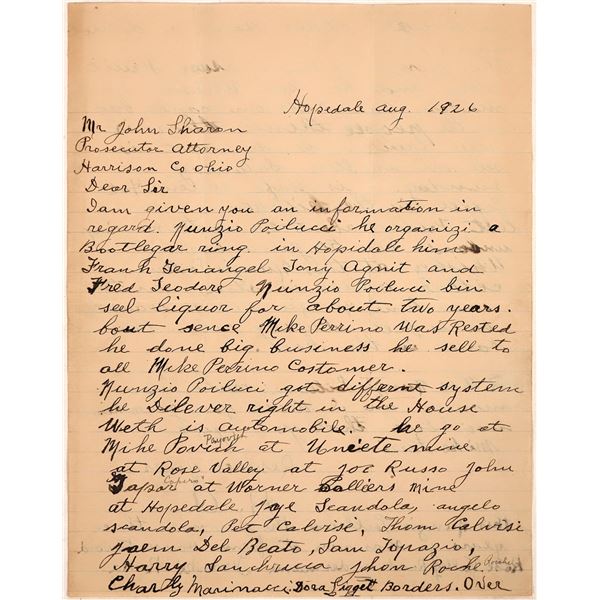 Hopedale Aug. 1926
Mr John Sharon
Prosecutor Attorney
Harrison Co Ohio
Dear Sir
I am given you an information in
regard. Nunzio Poilucci he organizi a
Bootlegar ring. in Hopidale him
Frank Genangel Tony Agnit and
Fred Teodore Nunzio Poiluci bin
seel liquor for about two years.
bout sence Mike Perrino Was Rested
he done big business he sell to
all Mike Perrino Costomer.
Nunzio Poiluci got diffrent system
he Dilever right in the House
Weth is automobile. he go at
Payovich
Mike Povich at Unicte mine
at Rose Valley at Joe Russo John
Capers
Tapar at Warner Colliers Mine
at Hopedale Joye Scandola, angelo
scandola, Pet Calvise, Thom Calvise
Joem Del Beato, Sam Topazio,
Harry Sanchrico Jhon Roche
Charly Marinacci. Dora Liggett Borders. Over